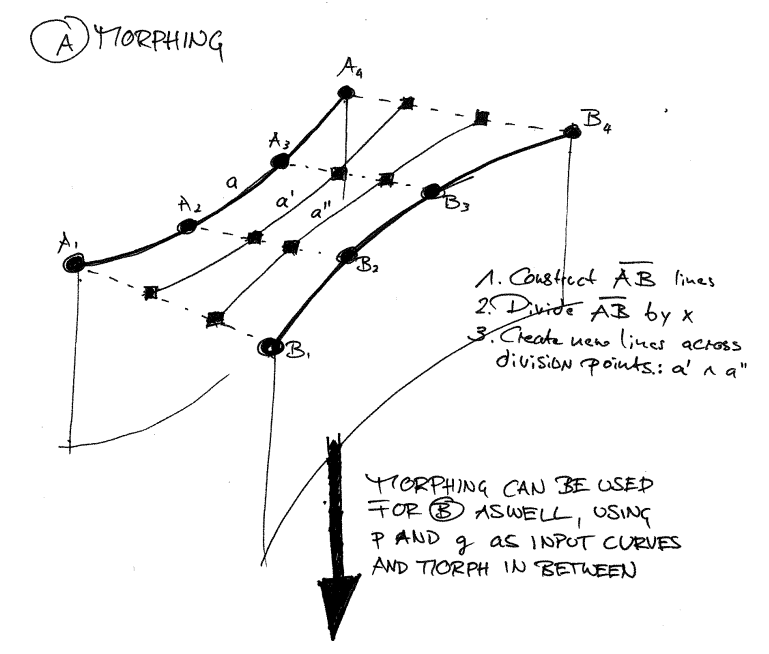 A MORPHING
A4
B4
A3
a
a'
a"
A2
B3
A1
B2
B1
1. Construct AB lines
2. Divide AB by x
3. Create new lines across
division points: a' ∧ a"
MORPHING CAN BE USED
FOR B ASWELL, USING
P AND g AS INPUT CURVES
AND MORPH IN BETWEEN